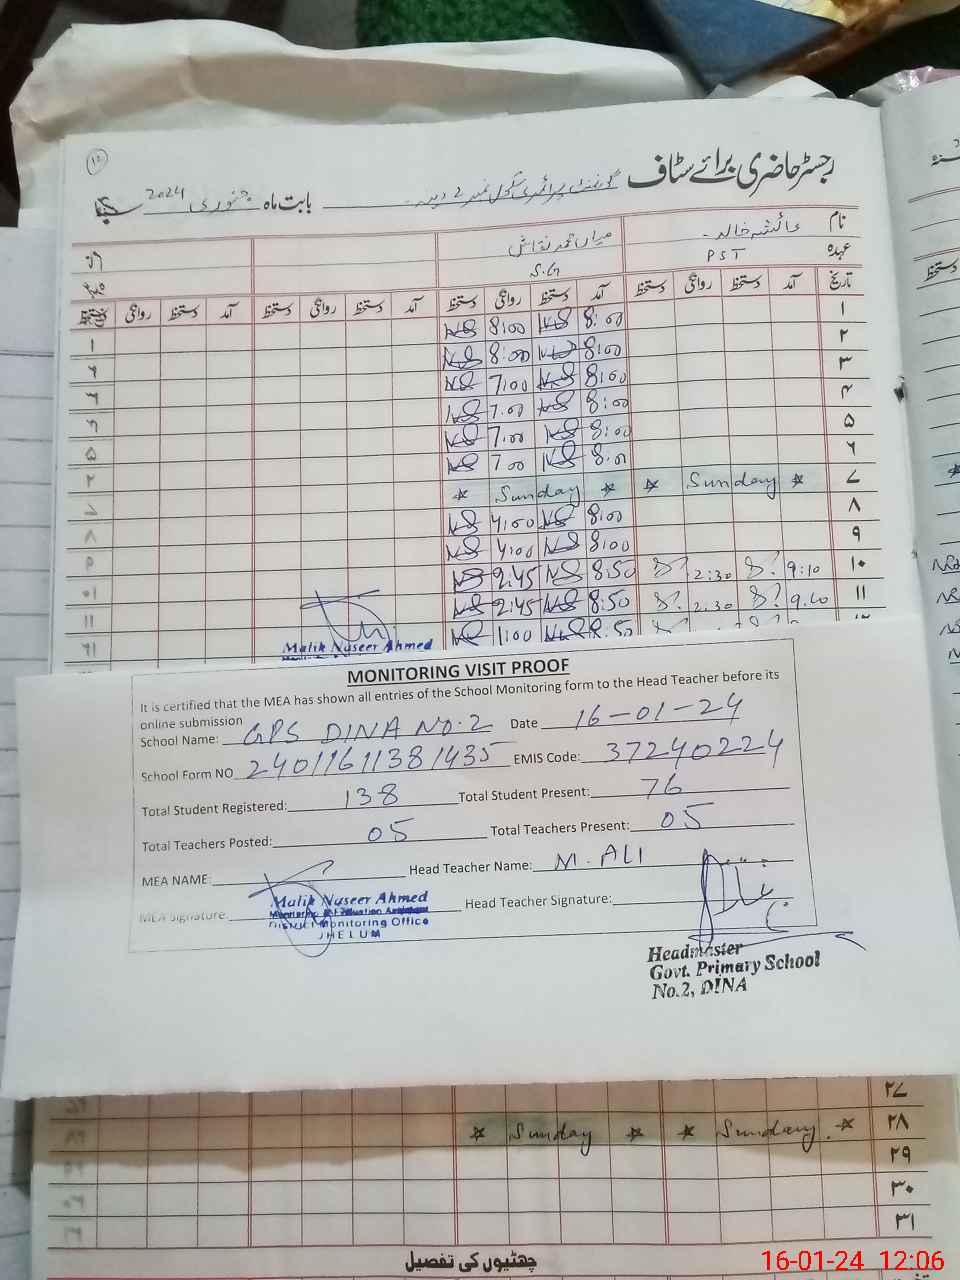 رجسٹر حاضری برائے سٹاف گورنمنٹ پرائمری سکول نمبر 2 دینہ بابت ماہ جنوری 2024
نام عائشہ خالد
عہدہ PST S.G
تاریخ آمد دستخط روانگی دستخط آمد دستخط روانگی دستخط آمد دستخط روانگی دستخط آمد دستخط روانگی
۱ 8:00 NS 8:00 NS
۲ 8:00 NS 8:00 NS
۳ 8:00 NS 7:00 NS
۴ 8:00 NS 7:00 NS
۵ 8:00 NS 7:00 NS
۶ 8:00 NS 7:00 NS
۷ * Sunday * * Sunday *
۸ 8:00 NS 4:00 NS
۹ 8:00 NS 4:00 NS
۱۰ 9:10 2:30 8:50 NS 2:45 NS
۱۱ 9:10 2:30 8:50 NS 2:45 NS
8:50 NS 1:00 NS
Malik Naseer Ahmed
MONITORING VISIT PROOF
It is certified that the MEA has shown all entries of the School Monitoring form to the Head Teacher before its
online submission
School Name: GPS DINA NO.2 Date 16-01-24
School Form NO 24011611381435 EMIS Code: 37240224
Total Student Registered: 138 Total Student Present: 76
Total Teachers Posted: 05 Total Teachers Present: 05
MEA NAME: Head Teacher Name: M. ALI
MEA Signature: Head Teacher Signature:
Malik Naseer Ahmed
Monitoring & Evaluation Assistant
District Monitoring Office
JHELUM
Headmaster
Govt. Primary School
No.2, DINA
۲۷
۲۸ * Sunday * * Sunday *
۲۹
۳۰
۳۱
چھٹیوں کی تفصیل
16-01-24 12:06